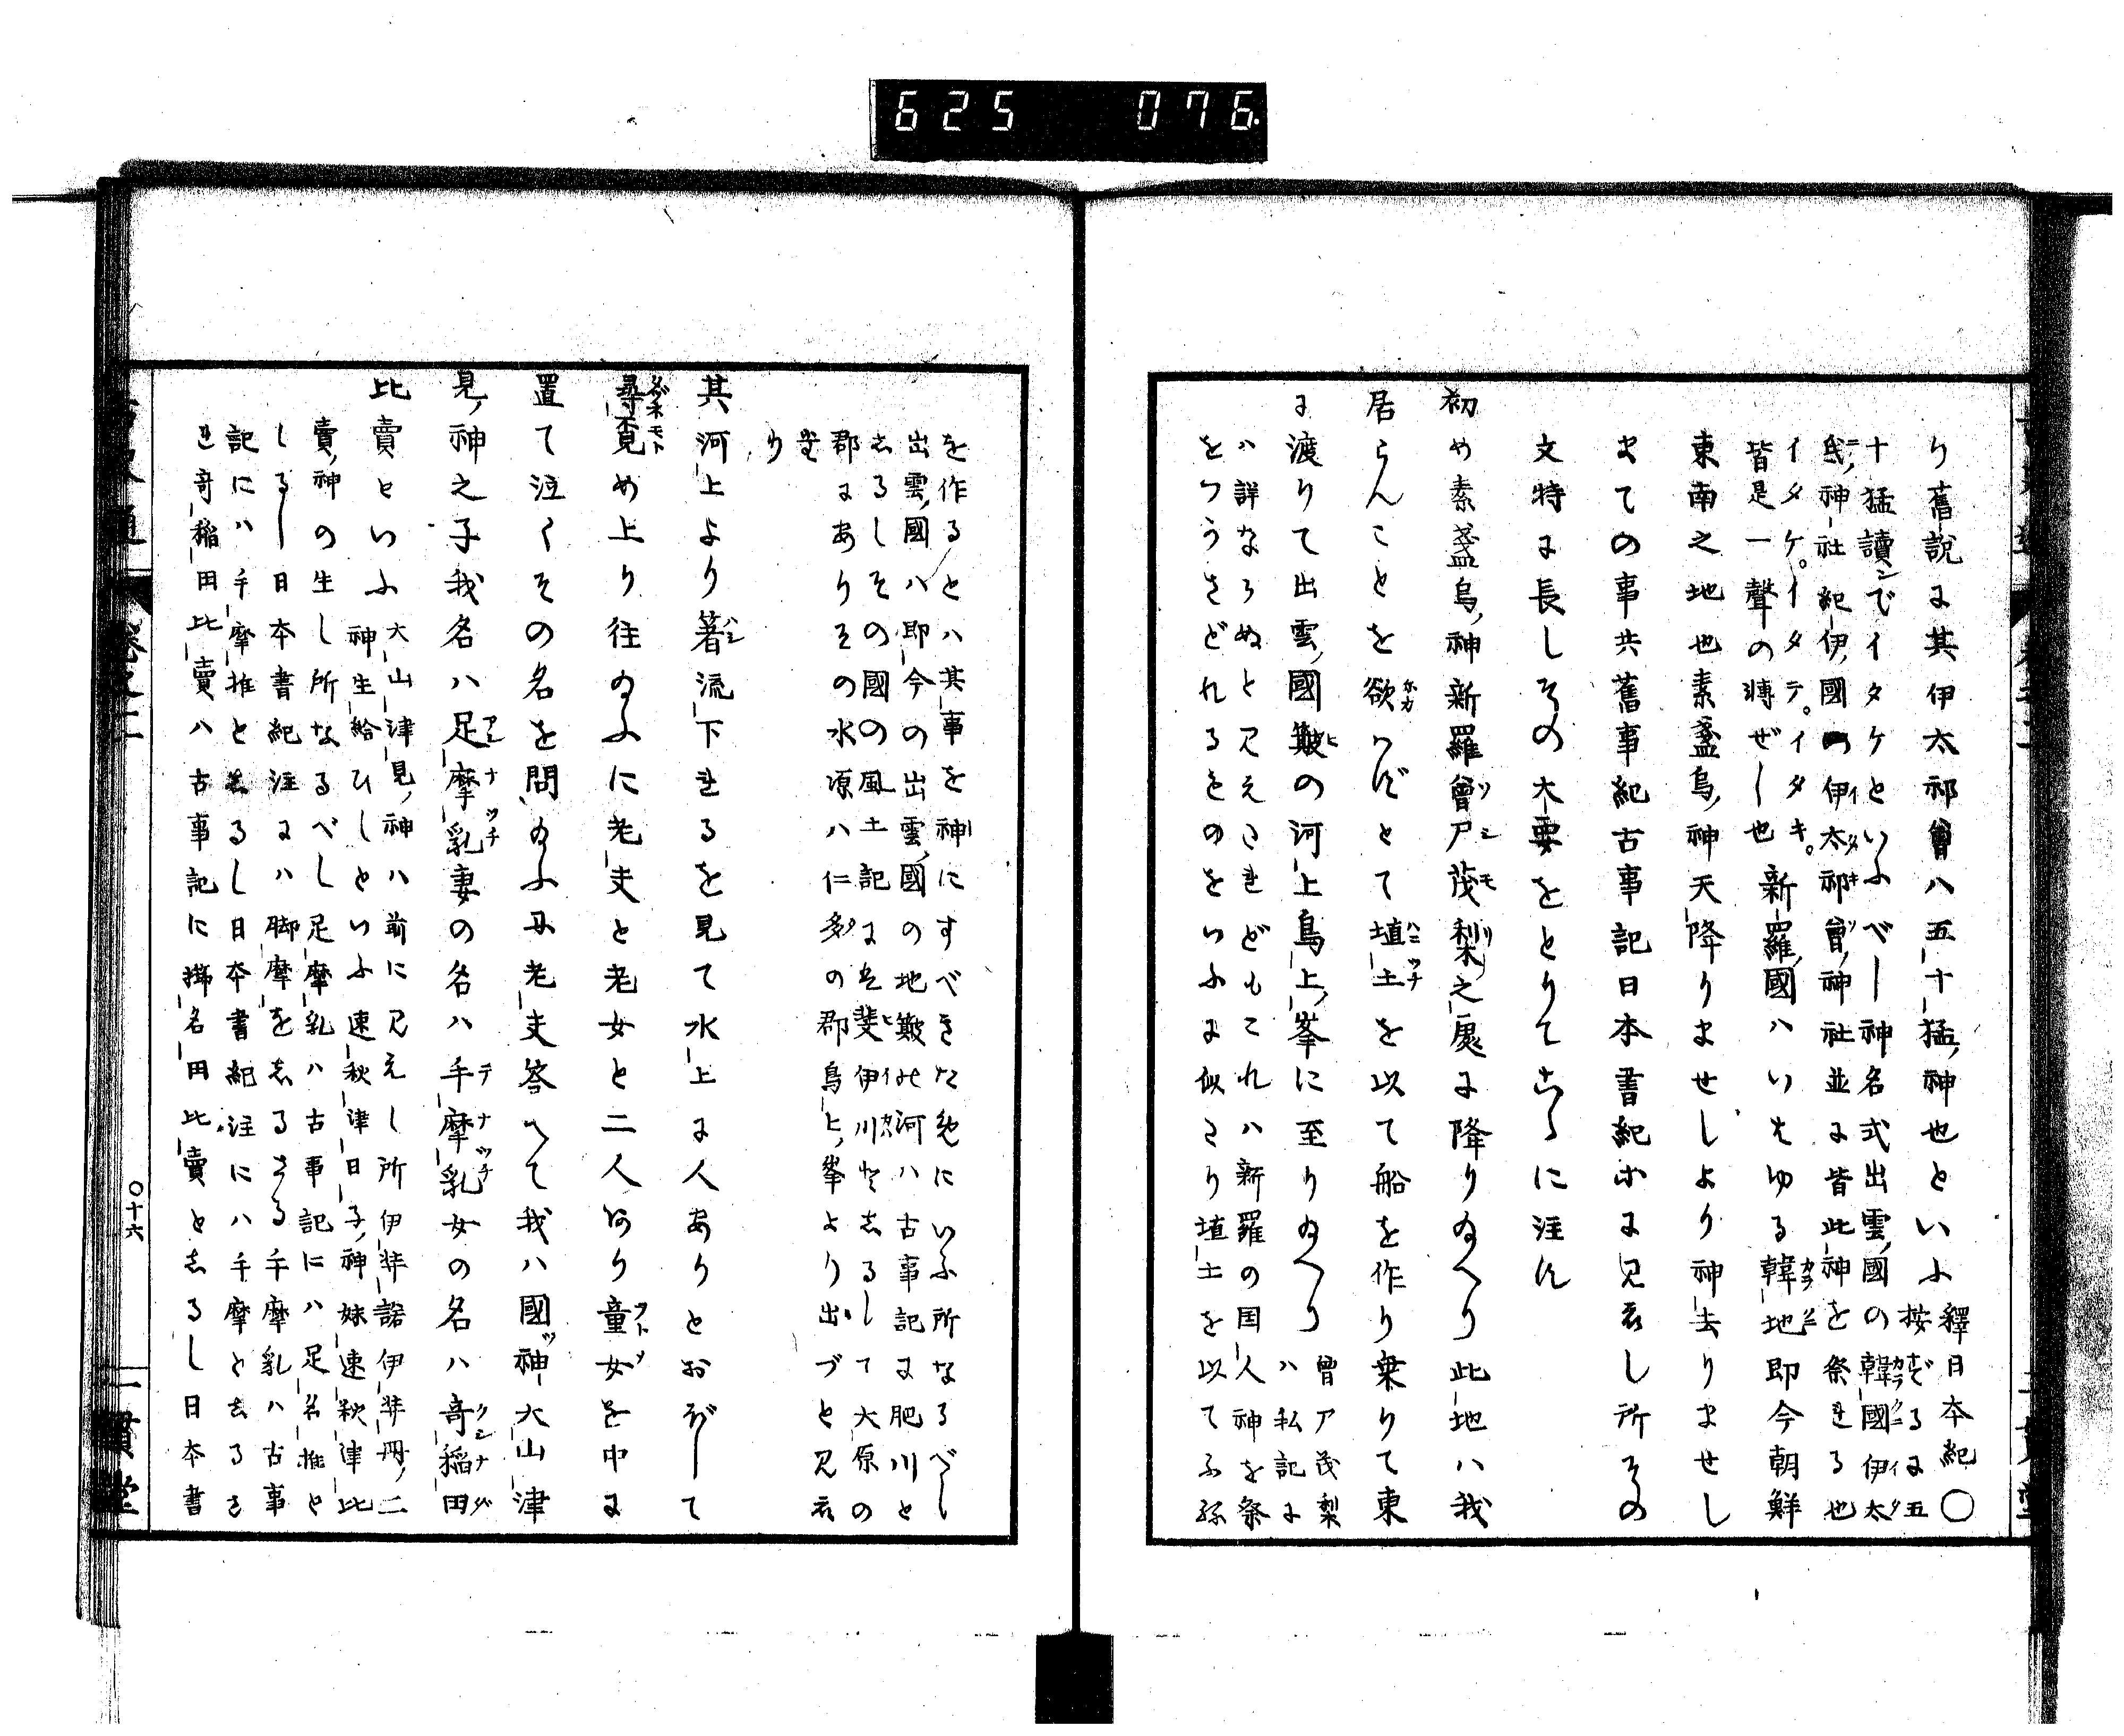 625 076
り舊説に其伊太祁曾ハ五十猛神也といふ釋日本紀〇
按ずるに五
十猛讀でイタケといふべし神名式出雲國の韓國伊太
氐神社紀伊國の伊太祁曾神社並に皆此神を祭れる也
イタケ。イタテ。イタキ。
皆是一聲の轉ぜし也新羅國ハいはゆる韓地即今朝鮮
東南之地也素盞烏神天降りませしより神去りませし
までの事共舊事紀古事記日本書紀等に見えし所その
文特に長しその大要をとりてこゝに注す
初め素盞烏神新羅曾尸茂梨之處に降り給へり此地ハ我
居らんことを欲せずとて埴土を以て船を作り乗りて東
に渡りて出雲國簸の河上鳥上峯に至り給へり
曾尸茂梨ハ私記に
ハ詳ならぬと見えたれどもこれハ新羅の国人神を祭
をつうさどれるものをいふに似たり埴土を以てふね
を作るとハ其事を神にすべきため にいふ所なるべし
出雲國ハ即今の出雲國の地簸の河ハ古事記に肥川と
しるしその國の風土記に斐伊川としるして大原の
郡にありその水源ハ仁多の郡鳥上峯より出づと見え
たり
其河上より箸流下れるを見て水上に人ありとおぼして
尋覓め上り往給ふに老夫と老女と二人あり童女を中に
置て泣くその名を問給ふ其老夫答へて我ハ國神大山津
見神之子我名ハ足摩乳妻の名ハ手摩乳女の名ハ奇稲田
比賣といふ
大山津見神ハ前に見えし所伊弉諾伊弉冊二
神生給ひしといふ速秋津日子神妹速秋津比
賣神の生し所なるべし足摩乳ハ古事記にハ足名推と
しるし日本書紀注にハ脚摩をしるさる手摩乳ハ古事
記にハ手摩推としるし日本書紀注にハ手摩としるさ
れ奇稲田比賣ハ古事記に櫛名田比賣としるし日本書
〇十六